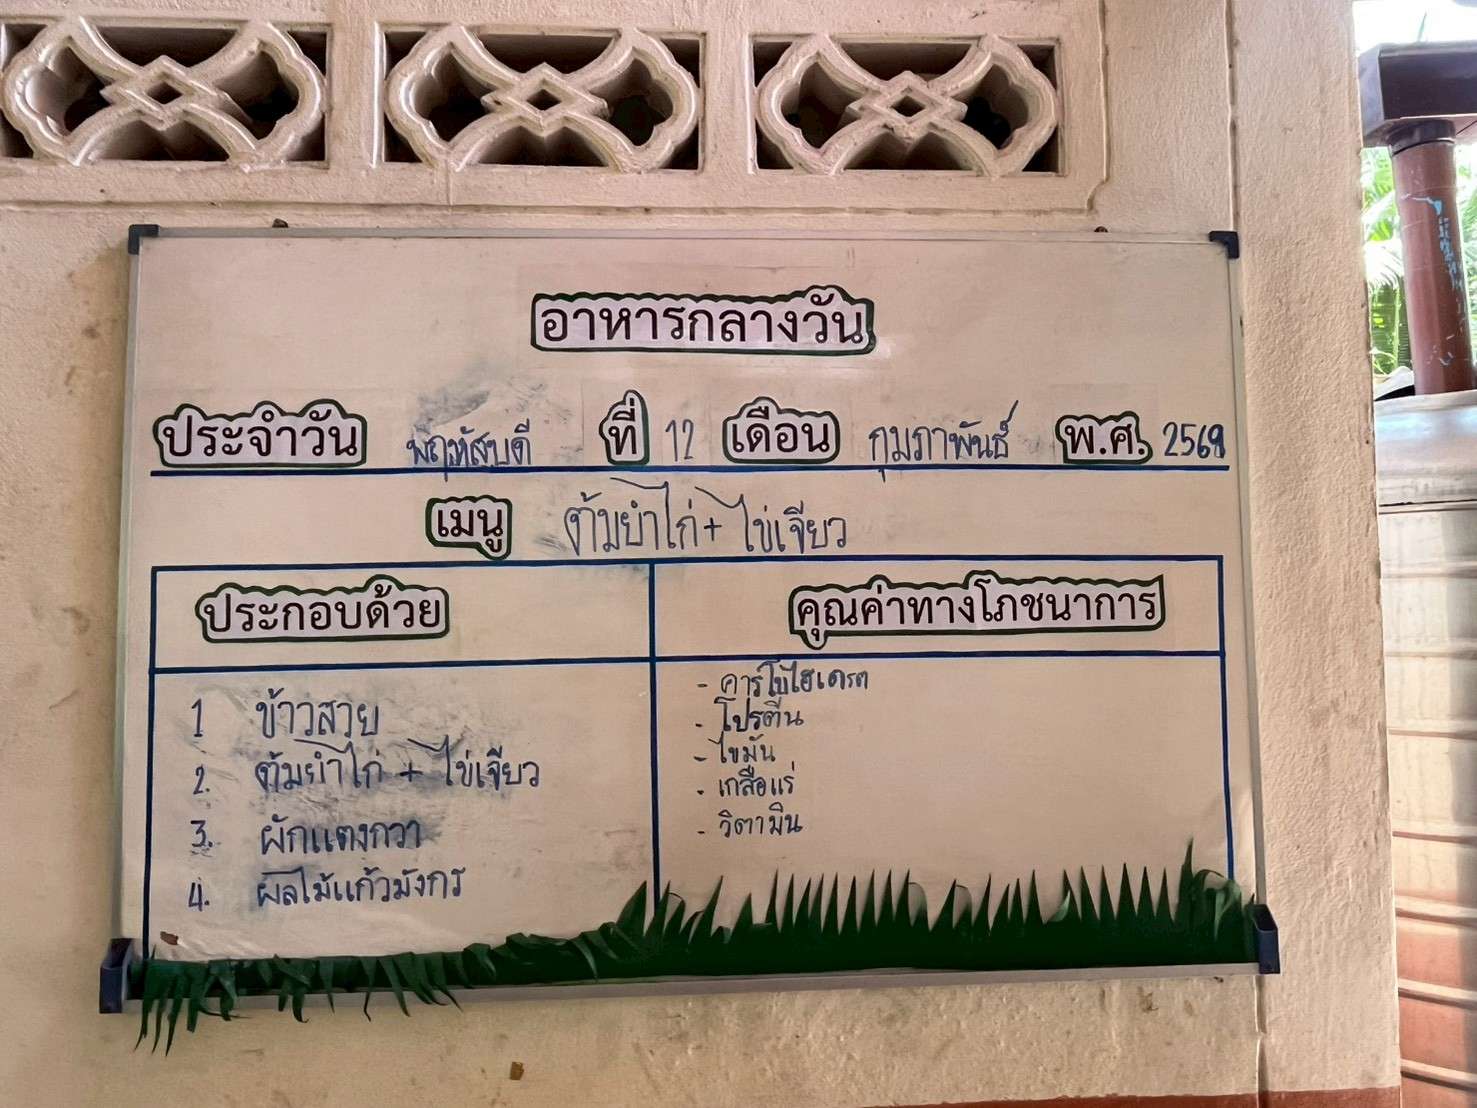 อาหารกลางวัน
ประจำวัน พฤหัสบดี ที่ 12 เดือน กุมภาพันธ์ พ.ศ. 2569
เมนู ต้มยำไก่ + ไข่เจียว
ประกอบด้วย คุณค่าทางโภชนาการ
1 ข้าวสวย
2. ต้มยำไก่ + ไข่เจียว
3. ผักแตงกวา
4. ผลไม้แก้วมังกร
- คาร์โบไฮเดรต
- โปรตีน
- ไขมัน
- เกลือแร่
- วิตามิน